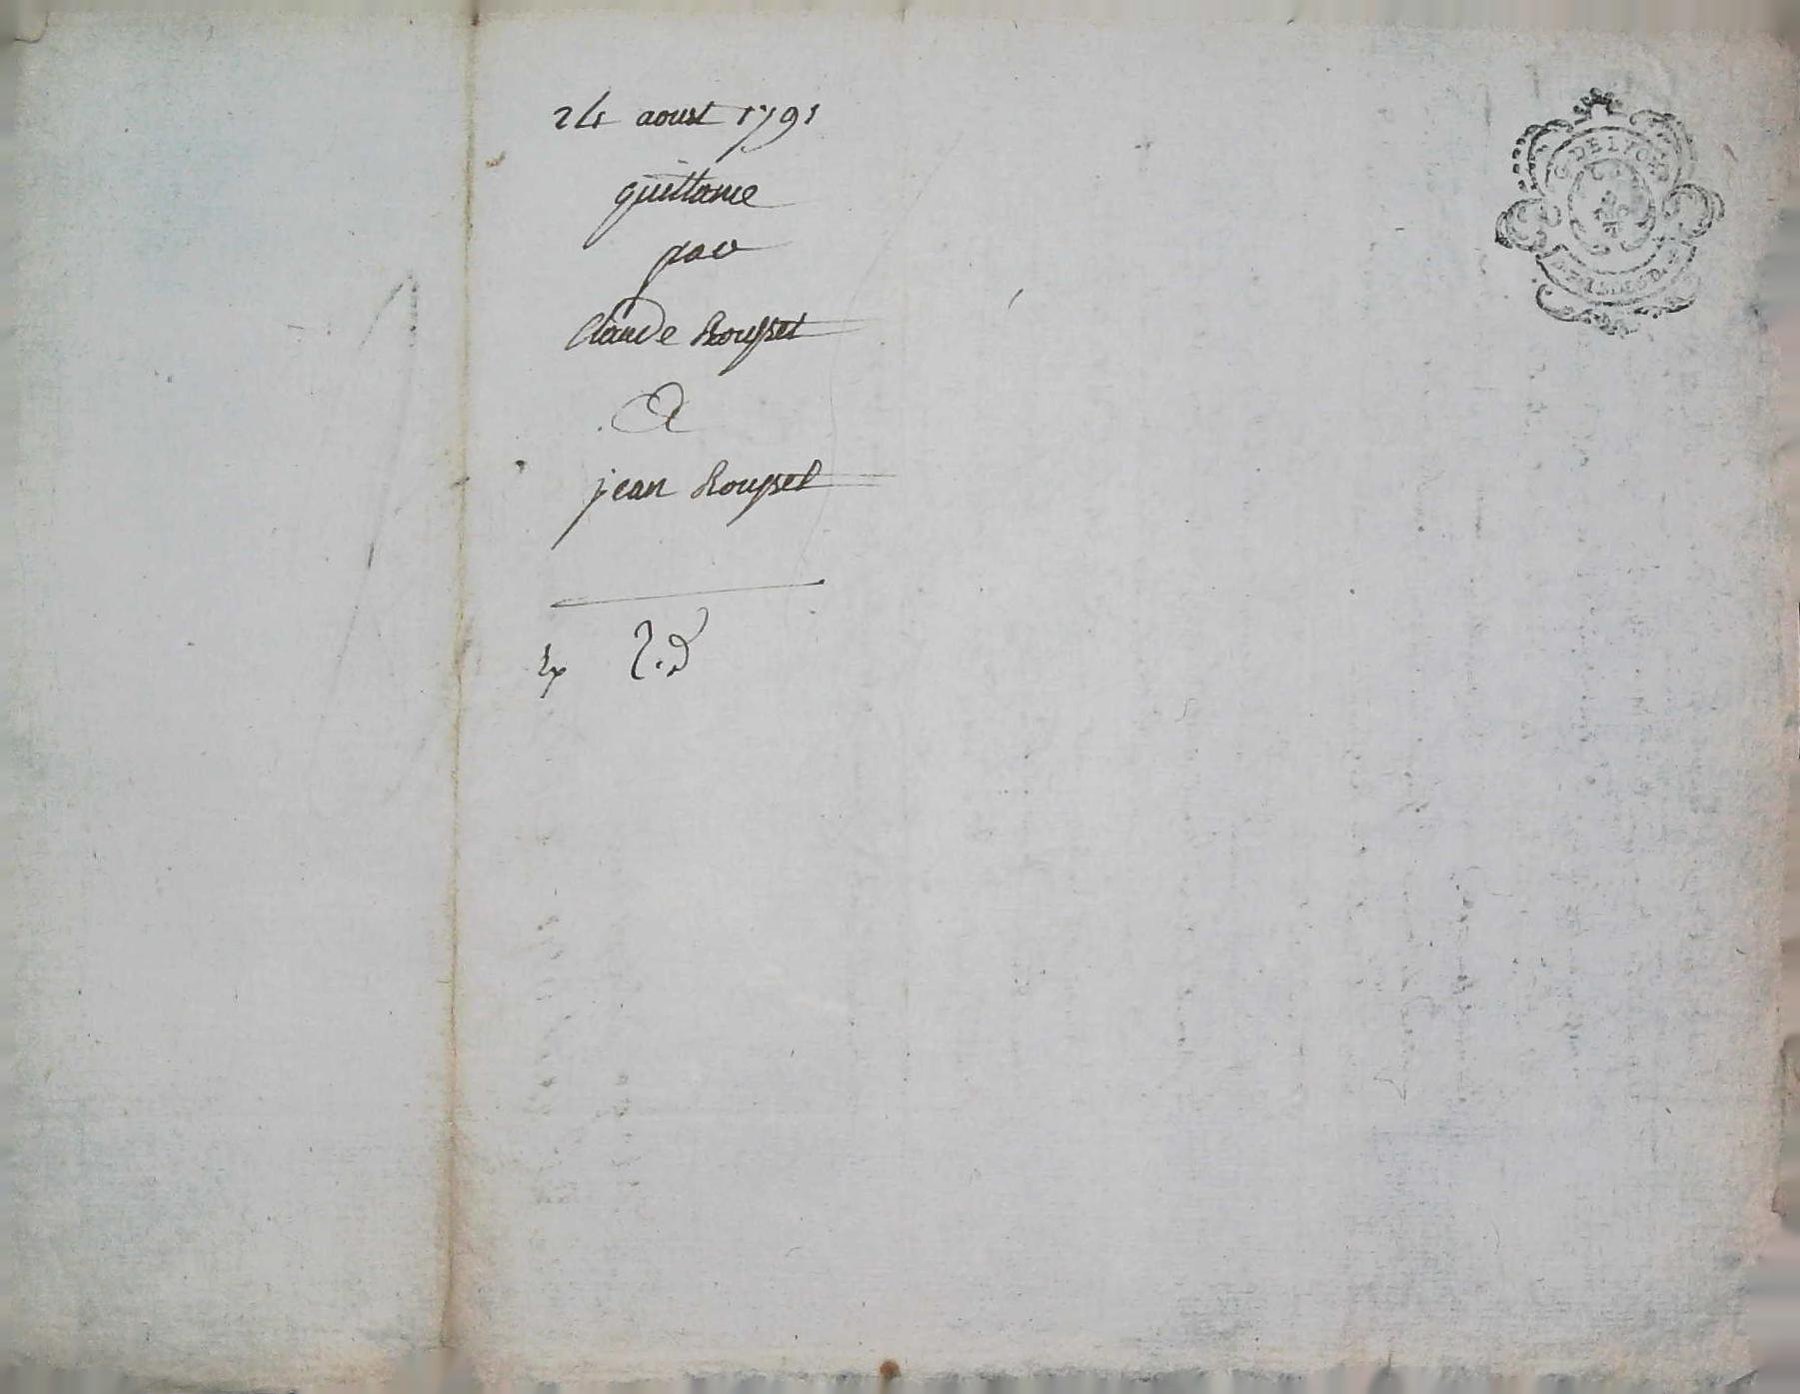 24 aoust 1791
quittance
par
Claude Rousset
A
jean Rousset
Ex
G. DE LYON